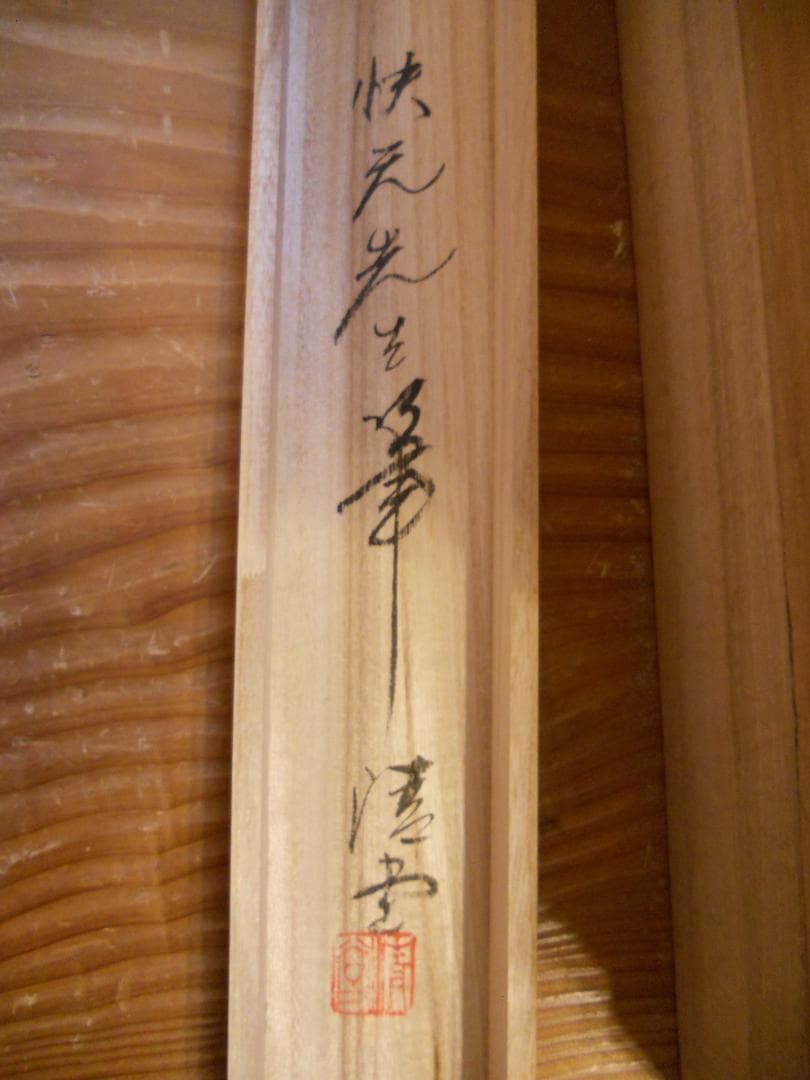 快元先生筆
清堂